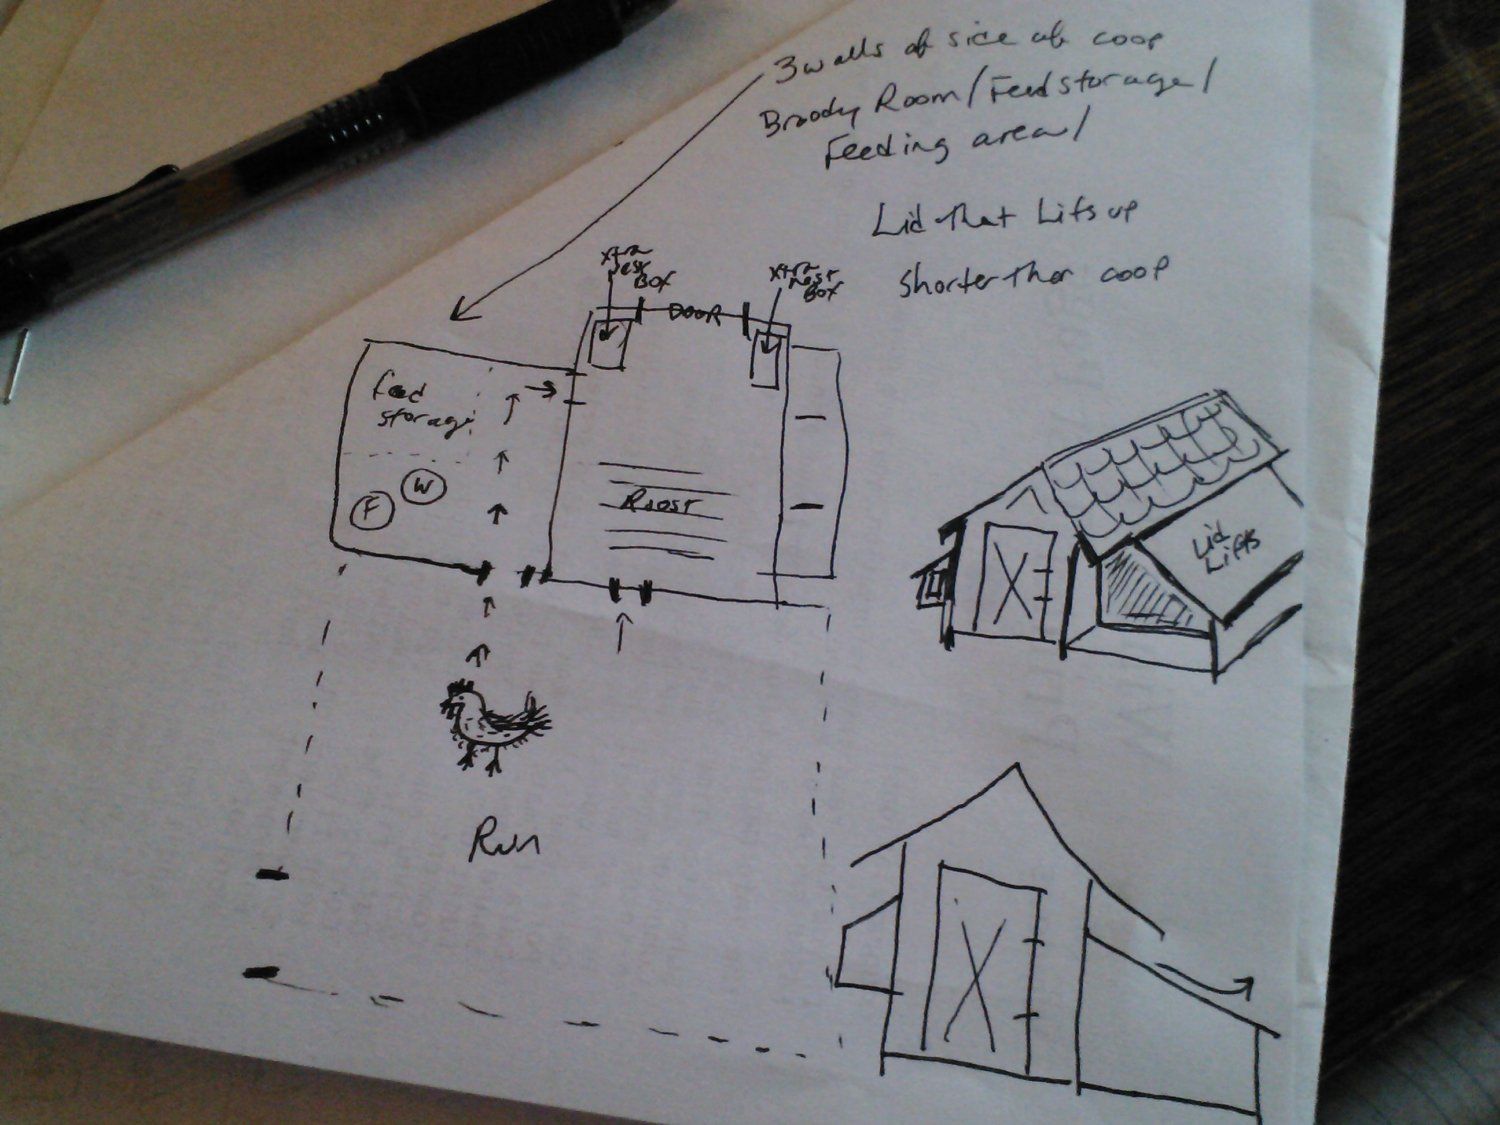 3 walls of side of coop
Broody Room/Feed storage/
Feeding area/
Lid that Lifs up
shorter than coop
xtra
nest
Box
xtra
nest
Box
DOOR
feed
storage
W
F
Roost
Lid
Lifts
Run